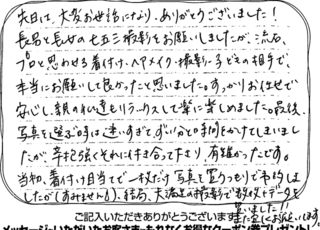 先日は、大変お世話になり、ありがとうございました！
長男と長女の七五三撮影をお願いしましたが、流石、
プロと思わせる着付け・ヘアメイク・撮影・子どもの相手で、
本当にお願いして良かったと思いました。すっかりお任せで
安心し、親の私達もリラックスして楽に楽しめました。最後、
写真を選ぶ時は迷いすぎて、ずい分と時間をかけてしまいまし
たが、辛抱強くそれに付き合って下さり、有難かったです。
当初、着付け目当てで一枚だけ写真を買うつもりで申込み
したが(すみません!)、結局、大満足の撮影で数枚とデータを
買いました!!
ご記入いただきありがとうございます
メッセージいただいたお客さまへもれなくお得なクーポン券プレゼント!